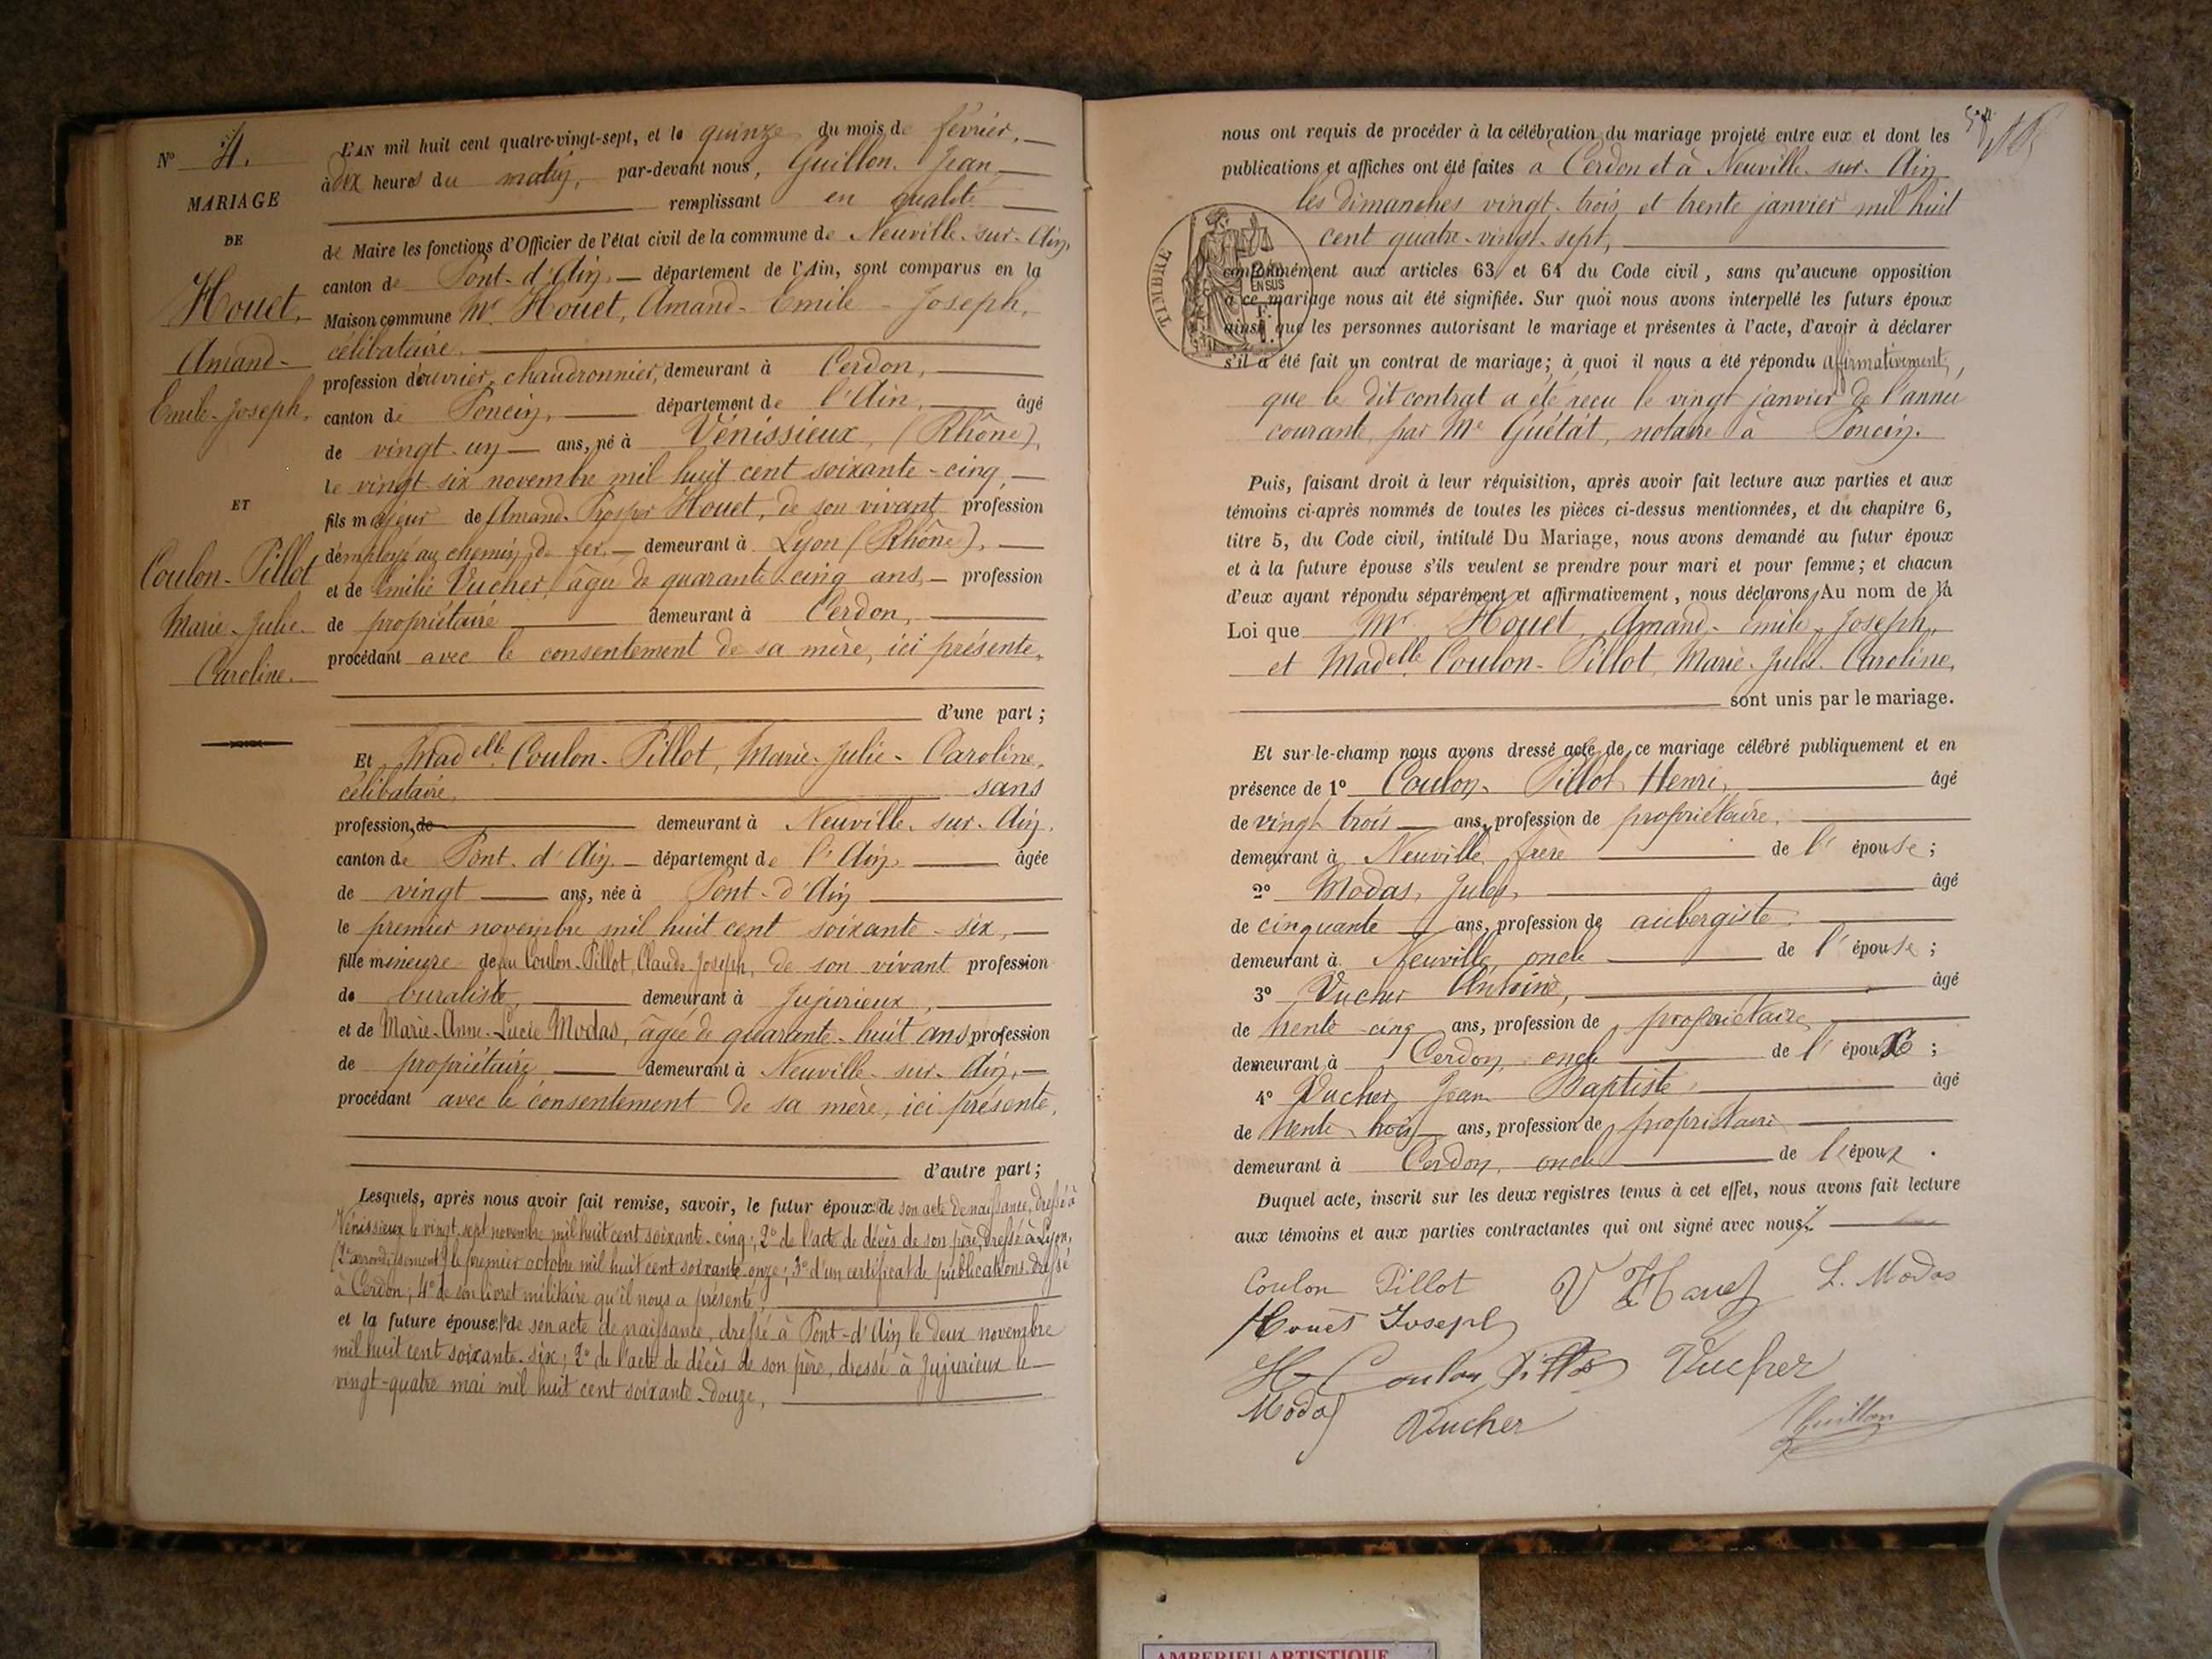 N° 4.
MARIAGE
DE
Houet,
Amand-
Emile-Joseph.
ET
Coulon-Pillot
Marie-Julie-
Caroline.
L'AN mil huit cent quatre-vingt-sept, et le quinze du mois de février,
à dix heures du matin, par-devant nous, Guillon Jean
remplissant en qualité
de Maire les fonctions d'Officier de l'état civil de la commune de Neuville-sur-Ain,
canton de Pont-d'Ain, département de l'Ain, sont comparus en la
Maison commune Mr Houet, Amand-Emile-Joseph,
célibataire,
profession d'ouvrier chaudronnier, demeurant à Cerdon,
canton de Poncin, département de l'Ain, âgé
de vingt-un ans, né à Vénissieux, (Rhône),
le vingt-six novembre mil huit cent soixante-cinq,
fils majeur de Amand-Prosper Houet, de son vivant profession
d'employé au chemin de fer, demeurant à Lyon (Rhône),
et de Emilie Vucher, âgée de quarante-cinq ans, profession
de propriétaire demeurant à Cerdon,
procédant avec le consentement de sa mère, ici présente,
d'une part ;
Et Madelle Coulon-Pillot, Marie-Julie-Caroline,
célibataire, sans
profession, de demeurant à Neuville-sur-Ain,
canton de Pont-d'Ain département de l'Ain, âgée
de vingt ans, née à Pont-d'Ain
le premier novembre mil huit cent soixante-six,
fille mineure de feu Coulon-Pillot, Claude-Joseph, de son vivant profession
de buraliste, demeurant à Jujurieux,
et de Marie-Anne-Lucie Modas, âgée de quarante-huit ans profession
de propriétaire demeurant à Neuville-sur-Ain,
procédant avec le consentement de sa mère, ici présente,
d'autre part ;
Lesquels, après nous avoir fait remise, savoir, le futur époux: 1° de son acte de naissance, dressé à
Vénissieux le vingt-sept novembre mil huit cent soixante-cinq; 2° de l'acte de décès de son père, dressé à Lyon,
(2e arrondissement) le premier octobre mil huit cent soixante-onze; 3° d'un certificat de publications dressé
à Cerdon; 4° de son livret militaire qu'il nous a présenté;
et la future épouse: 1° de son acte de naissance, dressé à Pont-d'Ain le deux novembre
mil huit cent soixante-six; 2° de l'acte de décès de son père, dressé à Jujurieux le
vingt-quatre mai mil huit cent soixante-douze,
nous ont requis de procéder à la célébration du mariage projeté entre eux et dont les
publications et affiches ont été faites à Cerdon et à Neuville-sur-Ain
les dimanches vingt-trois et trente janvier mil huit
cent quatre-vingt-sept,
TIMBRE
EN SUS
conformément aux articles 63 et 64 du Code civil, sans qu'aucune opposition
à ce mariage nous ait été signifiée. Sur quoi nous avons interpellé les futurs époux
ainsi que les personnes autorisant le mariage et présentes à l'acte, d'avoir à déclarer
s'il a été fait un contrat de mariage; à quoi il nous a été répondu affirmativement,
que le dit contrat a été reçu le vingt janvier de l'année
courante, par Me Guétat, notaire à Poncin.
Puis, faisant droit à leur réquisition, après avoir fait lecture aux parties et aux
témoins ci-après nommés de toutes les pièces ci-dessus mentionnées, et du chapitre 6,
titre 5, du Code civil, intitulé Du Mariage, nous avons demandé au futur époux
et à la future épouse s'ils veulent se prendre pour mari et pour femme; et chacun
d'eux ayant répondu séparément et affirmativement, nous déclarons Au nom de la
Loi que Mr Houet, Amand-Emile-Joseph,
et Madelle Coulon-Pillot, Marie-Julie-Caroline,
sont unis par le mariage.
Et sur-le-champ nous avons dressé acte de ce mariage célébré publiquement et en
présence de 1° Coulon-Pillot Henri, âgé
de vingt trois ans, profession de propriétaire,
demeurant à Neuville, frère de l'épouse ;
2° Modas, Jules, âgé
de cinquante ans, profession de aubergiste,
demeurant à Neuville, oncle de l'épouse ;
3° Vucher Antoine, âgé
de trente-cinq ans, profession de propriétaire
demeurant à Cerdon, oncle de l'époux ;
4° Vucher Jean Baptiste, âgé
de trente trois ans, profession de propriétaire
demeurant à Cerdon, oncle de l'époux.
Duquel acte, inscrit sur les deux registres tenus à cet effet, nous avons fait lecture
aux témoins et aux parties contractantes qui ont signé avec nous.
Coulon Pillot V Houet L. Modas
Houet Joseph
H Coulon Pillot Vucher
Modas Vucher Guillon
AMBERIEU ARTISTIQUE